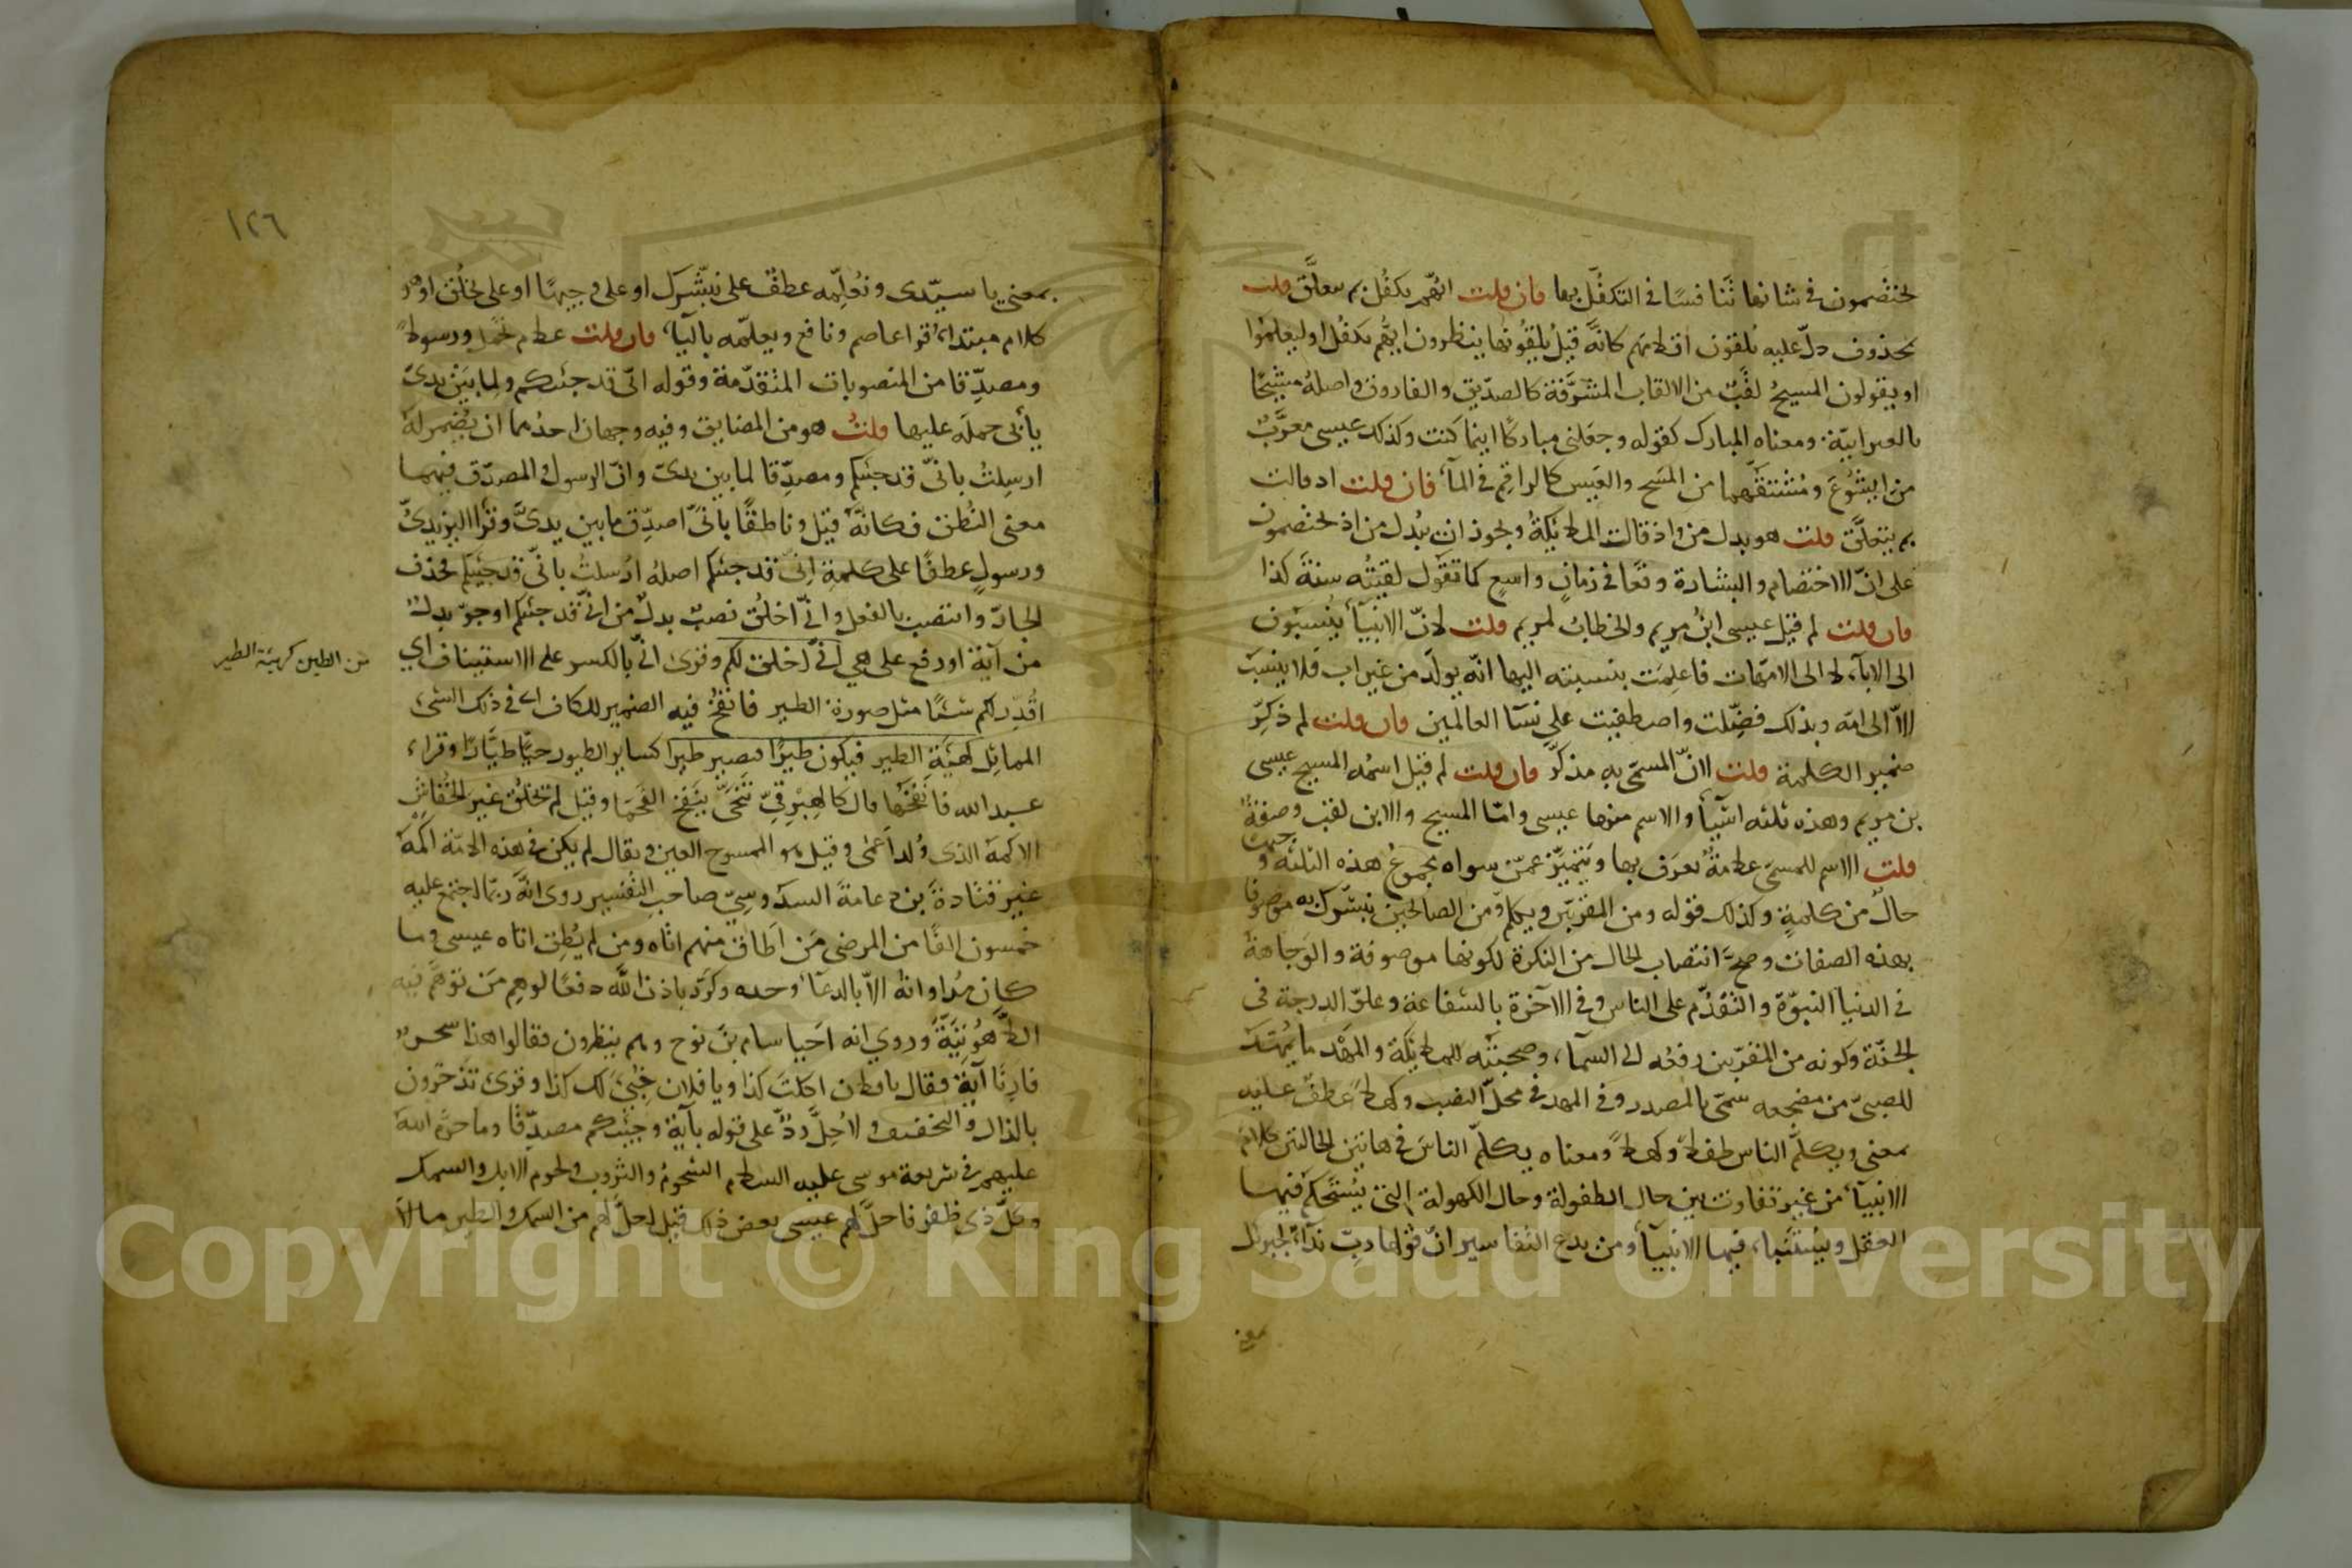 يختصمون في شانها تنافسا في التكفل بها فان قلت ايهم يكفل بم يتعلق قلت
بمحذوف دلّ عليه يلقون اقلامهم كانّه قيل يلقونها ينظرون ايهم يكفل او ليعلموا
او يقولون المسيحُ لقبٌ من الالقاب المشرّفة كالصدّيق والفاروق واصلهُ مشيحًا
بالعبرانيّة ومعناه المبارك كقوله وجعلني مباركًا اينما كنت وكذلك عيسى معرّبٌ
من ايشوع ومُشتقّهما من المسح والعيس كالراقم في المآء فان قلت اذ قالت
بم يتعلّق قلت هو بدل من واذ قالت الملائكةُ ويجوز ان يُبدل من اذ يختصمون
على انّ الاختصام والبشارة وقعا في زمانٍ واسعٍ كما تقول لقيتُه سنةَ كذا
فان قلت لم قيل عيسى ابن مريم والخطابُ لمريم قلت لانّ الانبيآء يُنسبون
الى الابآء لا الى الامّهات فاعلمت بنسبته اليها انّه يولد من غير اب فلا ينسب
الاّ الى امّه وبذلك فضّلت واصطفيت على نسآ العالمين فان قلت لم ذكّر
ضمير الكلمة قلت لانّ المسمّى به مذكّر فان قلت لم قيل اسمُه المسيح عيسى
بن مريم وهذه ثلثه اشيآء والاسم منها عيسى وامّا المسيح والابن لقب وصفةٌ
قلت الاسم للمسمّى علامةٌ يعرف بها ويتميّز عمّن سواه مجموعُ هذه الثلثه وجيها
حالٌ من كلمةٍ وكذلك قوله ومن المقرّبين ويكلم ومن الصالحين يبشّرك به موصوفا
بهذه الصفات وصحّ انتصاب الحال من النكرة لكونها موصوفة والوجاهة
في الدنيا النبوّة والتقدّم على الناس وفي الآخرة بالشفاعة وعلوّ الدرجة في
الجنّة وكونه من المقرّبين رفعُه الى السمآء وصحبتُه للملائكة والمهد ما يمهّد
للصبيّ من مضجعه سمّي بالمصدر وفي المهد في محلّ النصب وكهلاً عطفٌ عليه
بمعنى ويكلّم الناس طفلاً وكهلاً ومعناه يكلّم الناسَ في هاتين الحالتين كلامَ
الانبيآء من غير تفاوت بين حال الطفولة وحال الكهولة التي يُستحكم فيها
العقل ويُستنبأ فيها الانبيآء ومن بدع التفاسير انّ قولها ربّ ندآءٌ لجبرئل
بمعنى
١٢٦
بمعنى يا سيّدي ونُعلّمه عطفٌ على نبشّرك او على وجيهًا او على يخلُق او هو
كلام مبتداء قرا عاصم ونافع ويعلّمه باليآء فان قلت علام تحمل ورسولاً
ومصدّقا من المنصوبات المتقدّمة وقوله انّي قد جئتكم ولما بين يديّ
يأبى حمله عليها قلتُ هو من المضايق وفيه وجهان احدهما ان يُضمر له
ارسلتُ بانّي قد جئتكم ومصدّقا لما بين يديّ وانّ الرسول والمصدّق فيهما
معنى النُطق فكانّه قيل وناطقًا بانّي اصدّق ما بين يديّ وقرا اليزيديُّ
ورسولٍ عطفًا على كلمةٍ انّي قد جئتكم اصلهُ ارسلتُ بانّي قد جئتكم فحذف
الجارّ وانتصب بالفعل وانّي اخلُق نصبٌ بدلٌ من انّي قد جئتكم او جرّ بدلٌ
من آية او رفع على هي انّي اخلق لكم وقرئ انّي بالكسر على الاستيناف اي
من الطين كهيئة الطير
اقدّر لكم شيئًا مثل صورة الطير فانفخُ فيه الضمير للكاف اي في ذلك الشئ
المماثل لهيئة الطير فيكون طيرًا فيصير طيرا كساير الطيور حيًّا طيّارًا وقراء
عبد الله فانفخها قال كالهبرقيّ تنحّى ينفخ الفحما وقيل لم يخلُق غير الخُفّاش
الاكمهَ الذي وُلد اعمى وقيل هو الممسوح العين ويقال لم يكن في هذه الامّة اكمه
غير قتادة بن دعامة السدوسيّ صاحب التفسير روى انّه ربّما اجتمع عليه
خمسون الفًا من المرضى مَن اطاق منهم اتاه ومن لم يُطِق اتاه عيسى وما
كان مُداواته الاّ بالدعآء وحده وكرّر باذن الله دفعًا لوهم من توهّم فيه
اللاهوتيّة وروي انه احيا سام بن نوح وهم ينظرون فقالوا هذا سحرٌ
فارنا آية فقال يا فلان اكلتَ كذا ويا فلان خُبّئ لك كذا وقرئ تذخرون
بالذال والتخفيف ولاحلّ ردٌّ على قوله بآية وجئتكم مصدّقًا وما حرّم الله
عليهم في شريعة موسى عليه السلام الشحومُ والثروب ولحوم الابل والسمك
وكلّ ذى ظفر فاحلّ لهم عيسى بعض ذلك قيل احلّ لهم من السمك والطير ما لا
Copyright © King Saud University